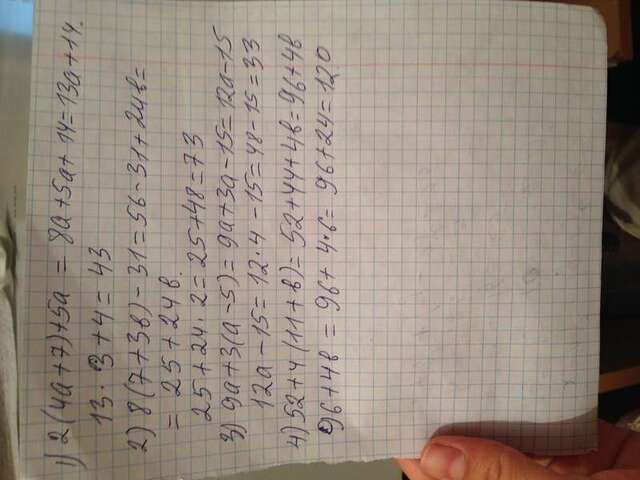 1) 2(4a+7)+5a = 8a+5a+14=13a+14.
13·3+4=43
2) 8(7+3в)-31=56-31+24в=
= 25+24в.
25+24·2=25+48=73
3) 9a+3(a-5)=9a+3a-15=12a-15
12a-15=12·4-15=48-15=33
4) 52+4(11+в)=52+44+4в=96+4в
96+4в = 96+4·6= 96+24=120